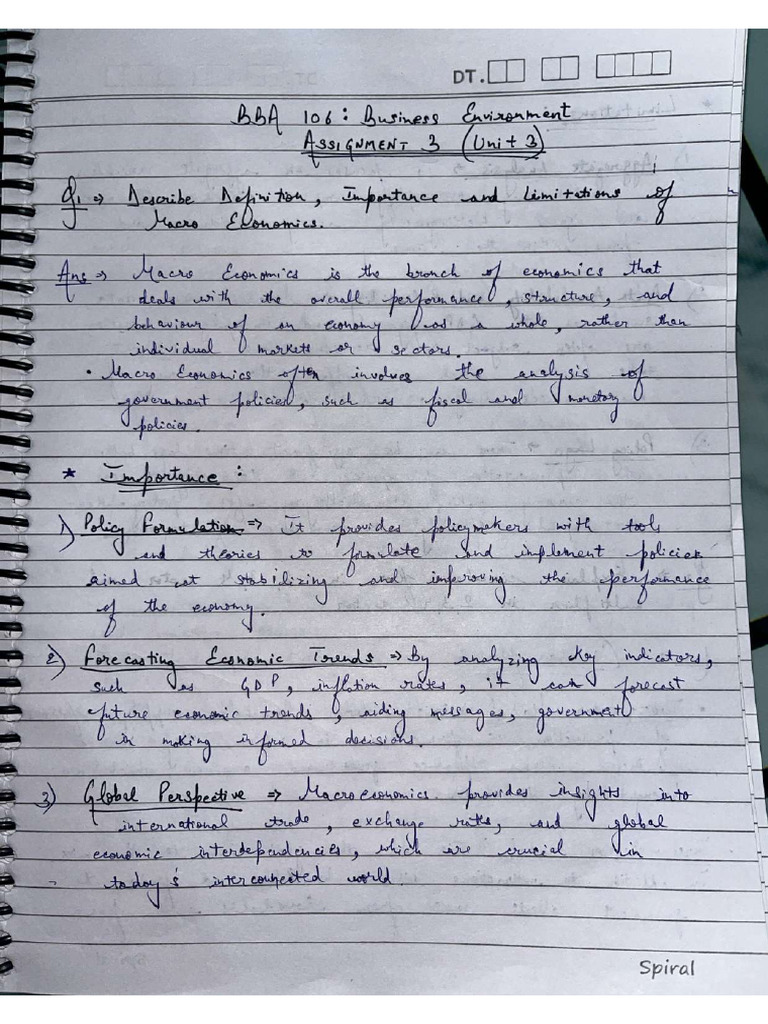 DT.
BBA 106: Business Environment
ASSIGNMENT 3 (Unit 3)
Q1 => Describe Definition, Importance and Limitations of
Macro Economics.
Ans => Macro Economics is the branch of economics that
deals with the overall performance, structure, and
behaviour of an economy as a whole, rather than
individual markets or sectors.
• Macro Economics often involves the analysis of
government policies, such as fiscal and monetory
policies.
* Importance :
1) Policy Formulation => It provides policymakers with tools
and theories to formulate and implement policies
aimed at stabilizing and improving the performance
of the economy.
2) Forecasting Economic Trends => By analyzing key indicators,
such as GDP, inflation rates, it can forecast
future economic trends, aiding messages, government
in making informed decisions.
3) Global Perspective => Macroeconomics provides insights into
international trade, exchange rates, and global
economic interdependencies, which are crucial in
today's interconnected world.
Spiral